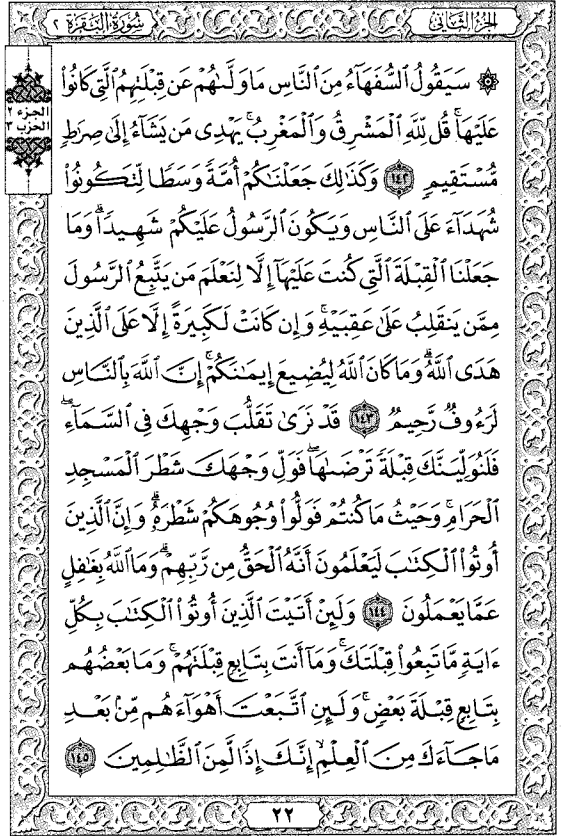 الجزء الثاني
سورة البقرة ٢
الجزء ٢
الحزب ٣
۞ سَيَقُولُ ٱلسُّفَهَآءُ مِنَ ٱلنَّاسِ مَا وَلَّىٰهُمْ عَن قِبْلَتِهِمُ ٱلَّتِى كَانُوا۟
عَلَيْهَا ۚ قُل لِّلَّهِ ٱلْمَشْرِقُ وَٱلْمَغْرِبُ ۚ يَهْدِى مَن يَشَآءُ إِلَىٰ صِرَٰطٍ
مُّسْتَقِيمٍ ١٤٢ وَكَذَٰلِكَ جَعَلْنَٰكُمْ أُمَّةً وَسَطًا لِّتَكُونُوا۟
شُهَدَآءَ عَلَى ٱلنَّاسِ وَيَكُونَ ٱلرَّسُولُ عَلَيْكُمْ شَهِيدًا ۗ وَمَا
جَعَلْنَا ٱلْقِبْلَةَ ٱلَّتِى كُنتَ عَلَيْهَآ إِلَّا لِنَعْلَمَ مَن يَتَّبِعُ ٱلرَّسُولَ
مِمَّن يَنقَلِبُ عَلَىٰ عَقِبَيْهِ ۚ وَإِن كَانَتْ لَكَبِيرَةً إِلَّا عَلَى ٱلَّذِينَ
هَدَى ٱللَّهُ ۗ وَمَا كَانَ ٱللَّهُ لِيُضِيعَ إِيمَٰنَكُمْ ۚ إِنَّ ٱللَّهَ بِٱلنَّاسِ
لَرَءُوفٌ رَّحِيمٌ ١٤٣ قَدْ نَرَىٰ تَقَلُّبَ وَجْهِكَ فِى ٱلسَّمَآءِ ۖ
فَلَنُوَلِّيَنَّكَ قِبْلَةً تَرْضَىٰهَا ۚ فَوَلِّ وَجْهَكَ شَطْرَ ٱلْمَسْجِدِ
ٱلْحَرَامِ ۚ وَحَيْثُ مَا كُنتُمْ فَوَلُّوا۟ وُجُوهَكُمْ شَطْرَهُۥ ۗ وَإِنَّ ٱلَّذِينَ
أُوتُوا۟ ٱلْكِتَٰبَ لَيَعْلَمُونَ أَنَّهُ ٱلْحَقُّ مِن رَّبِّهِمْ ۗ وَمَا ٱللَّهُ بِغَٰفِلٍ
عَمَّا يَعْمَلُونَ ١٤٤ وَلَئِنْ أَتَيْتَ ٱلَّذِينَ أُوتُوا۟ ٱلْكِتَٰبَ بِكُلِّ
ءَايَةٍ مَّا تَبِعُوا۟ قِبْلَتَكَ ۚ وَمَآ أَنتَ بِتَابِعٍ قِبْلَتَهُمْ ۚ وَمَا بَعْضُهُم
بِتَابِعٍ قِبْلَةَ بَعْضٍ ۚ وَلَئِنِ ٱتَّبَعْتَ أَهْوَآءَهُم مِّنۢ بَعْدِ
مَا جَآءَكَ مِنَ ٱلْعِلْمِ ۙ إِنَّكَ إِذًا لَّمِنَ ٱلظَّٰلِمِينَ ١٤٥
٢٢